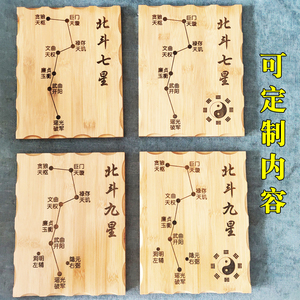 北斗七星
贪狼 天枢
巨门 天璇
禄存 天玑
文曲 天权
廉贞 玉衡
武曲 开阳
瑶光 破军
北斗七星
贪狼 天枢
巨门 天璇
禄存 天玑
文曲 天权
廉贞 玉衡
武曲 开阳
瑶光 破军
北斗九星
贪狼 天枢
巨门 天璇
禄存 天玑
文曲 天权
廉贞 玉衡
武曲 开阳
瑶光 破军
洞明 左辅
隐元 右弼
北斗九星
贪狼 天枢
巨门 天璇
禄存 天玑
文曲 天权
廉贞 玉衡
武曲 开阳
瑶光 破军
洞明 左辅
隐元 右弼
可定制内容